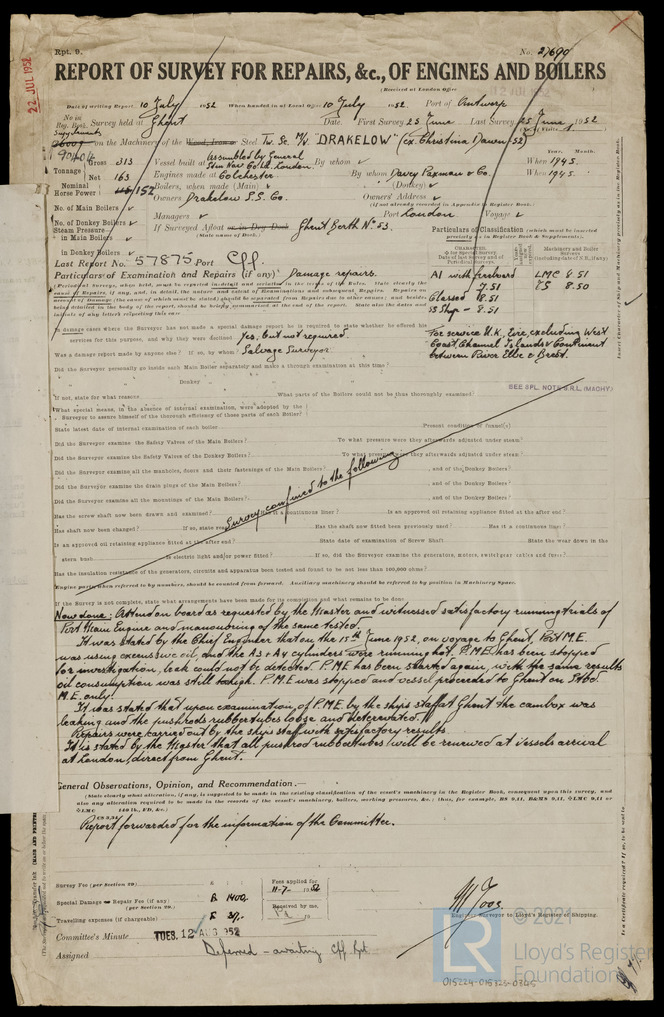 Rpt. 9.
No. 27690
22 JUL 1952
REPORT OF SURVEY FOR REPAIRS, &c., OF ENGINES AND BOILERS
(Received at London Office
Date of writing Report 10 July 1952 When handed in at Local Office 10 July 1952 Port of Antwerp
No. in Reg. Book. Survey held at Ghent Date First Survey 25 June Last Survey 25 June 1952
(No. of Visits 1)
Supplements
90404 on the Machinery of the Wood, Iron or Steel Tw. Sc. M/V "DRAKELOW" (ex. Christina Dawn-52)
Tonnage
Gross 313
Net 163
Vessel built at Assembled by General Stm Nav. Co Ltd. London By whom When 1945
Engines made at Colchester By whom Davey Paxman & Co. When 1945
Nominal Horse Power 152
Boilers, when made (Main) (Donkey)
No. of Main Boilers
Owners Drakelow S.S. Co. Owners' Address
(if not already recorded in Appendix to Register Book.)
No. of Donkey Boilers
Managers Port London Voyage
Steam Pressure in Main Boilers
If Surveyed Afloat or in Dry Dock Ghent Berth No. 53.
(State name of Dock.)
in Donkey Boilers
Particulars of Classification (which must be inserted precisely as in Register Book & Supplements).
Last Report No. 57875 Port Cff.
Particulars of Examination and Repairs (if any) Damage repairs.
A1 with freeboard
7.51
Classed 8.51
SS Shp - 8.51
LMC 8.51
TS 8.50
For service U.K, Eire, excluding West Coast, Channel Islands & Continent between River Elbe & Brest.
In damage cases where the Surveyor has not made a special damage report he is required to state whether he offered his services for this purpose, and why they were declined Yes, but not required
Was a damage report made by anyone else? If so, by whom? Salvage Surveyor
Did the Surveyor personally go inside each Main Boiler separately and make a thorough examination at this time?
Donkey
SEE SPL. NOTE S.R.L. (MACHY)
If not, state for what reasons What parts of the Boilers could not be thus thoroughly examined?
What special means, in the absence of internal examination, were adopted by the Surveyor to assure himself of the thorough efficiency of those parts of each Boiler?
State latest date of internal examination of each boiler Present condition of funnel(s)
Did the Surveyor examine the Safety Valves of the Main Boilers? To what pressure were they afterwards adjusted under steam?
Did the Surveyor examine the Safety Valves of the Donkey Boilers? To what pressure were they afterwards adjusted under steam?
Did the Surveyor examine all the manholes, doors and their fastenings of the Main Boilers? , and of the Donkey Boilers?
Did the Surveyor examine the drain plugs of the Main Boilers? , and of the Donkey Boilers?
Did the Surveyor examine all the mountings of the Main Boilers? , and of the Donkey Boilers?
Survey confined to the following
Has the screw shaft now been drawn and examined? Is it a continuous liner? Is an approved oil retaining appliance fitted at the after end?
Has shaft now been changed? If so, state reasons Has the shaft now fitted been previously used? Has it a continuous liner?
Is an approved oil retaining appliance fitted at the after end? State date of examination of Screw Shaft State the wear down in the
stern bush Is electric light and/or power fitted? If so, did the Surveyor examine the generators, motors, switchgear cables and fuses?
Has the insulation resistance of the generators, circuits and apparatus been tested and found to be not less than 100,000 ohms?
Engine parts when referred to by numbers, should be counted from forward. Auxiliary machinery should be referred to by position in Machinery Space.
If the Survey is not complete, state what arrangements have been made for its completion and what remains to be done
Now done: Attend on board as requested by the Master and witnessed satisfactory running trials of
Port Main Engine and manouvring of the same tested.
It was stated by the Chief Engineer that on the 15th June 1952, on voyage to Ghent, Port M.E.
was using excensive oil, and the A3 & A4 cylinders were running hot. P.M.E. has been stopped
for investigation, leak could not be detected. P.M.E has been started again, with the same results
oil consumption was still to high. P.M.E was stopped and vessel proceeded to Ghent on Stbd.
M.E. only.
It was stated that upon examination of P.M.E. by the ships staff at Ghent the cambox was
leaking and the pushrods rubbertubes loose and deterorated.
Repairs were carried out by the ships staff with satisfactory results.
It is stated by the Master that all pushrod rubbertubes will be renewed at vessels arrival
at London, direct from Ghent.
General Observations, Opinion, and Recommendation.—
(State clearly what alteration, if any, is suggested to be made in the existing classification of the vessel's machinery in the Register Book, consequent upon this survey, and
also any alteration required to be made in the records of the vessel's machinery, boilers, working pressures, &c.; thus, for example, BS 9,11, B&MS 9,11, LMC 9,11 or
LMC 140 lb., FD, &c.)
Report forwarded for the information of the Committee.
Survey Fee (per Section 29)
Special Damage or Repair Fee (if any) (per Section 29.) B. 1400.
Travelling expenses (if chargeable) B. 37.
Fees applied for
11-7-1952
Received by me,
Committee's Minute TUES. 12 AUG 1952
Assigned Deferred - awaiting Cff Rpt
Surveyor to Lloyd's Register of Shipping.
© 2021
LR
Lloyd's Register
Foundation
015224-015323-0345